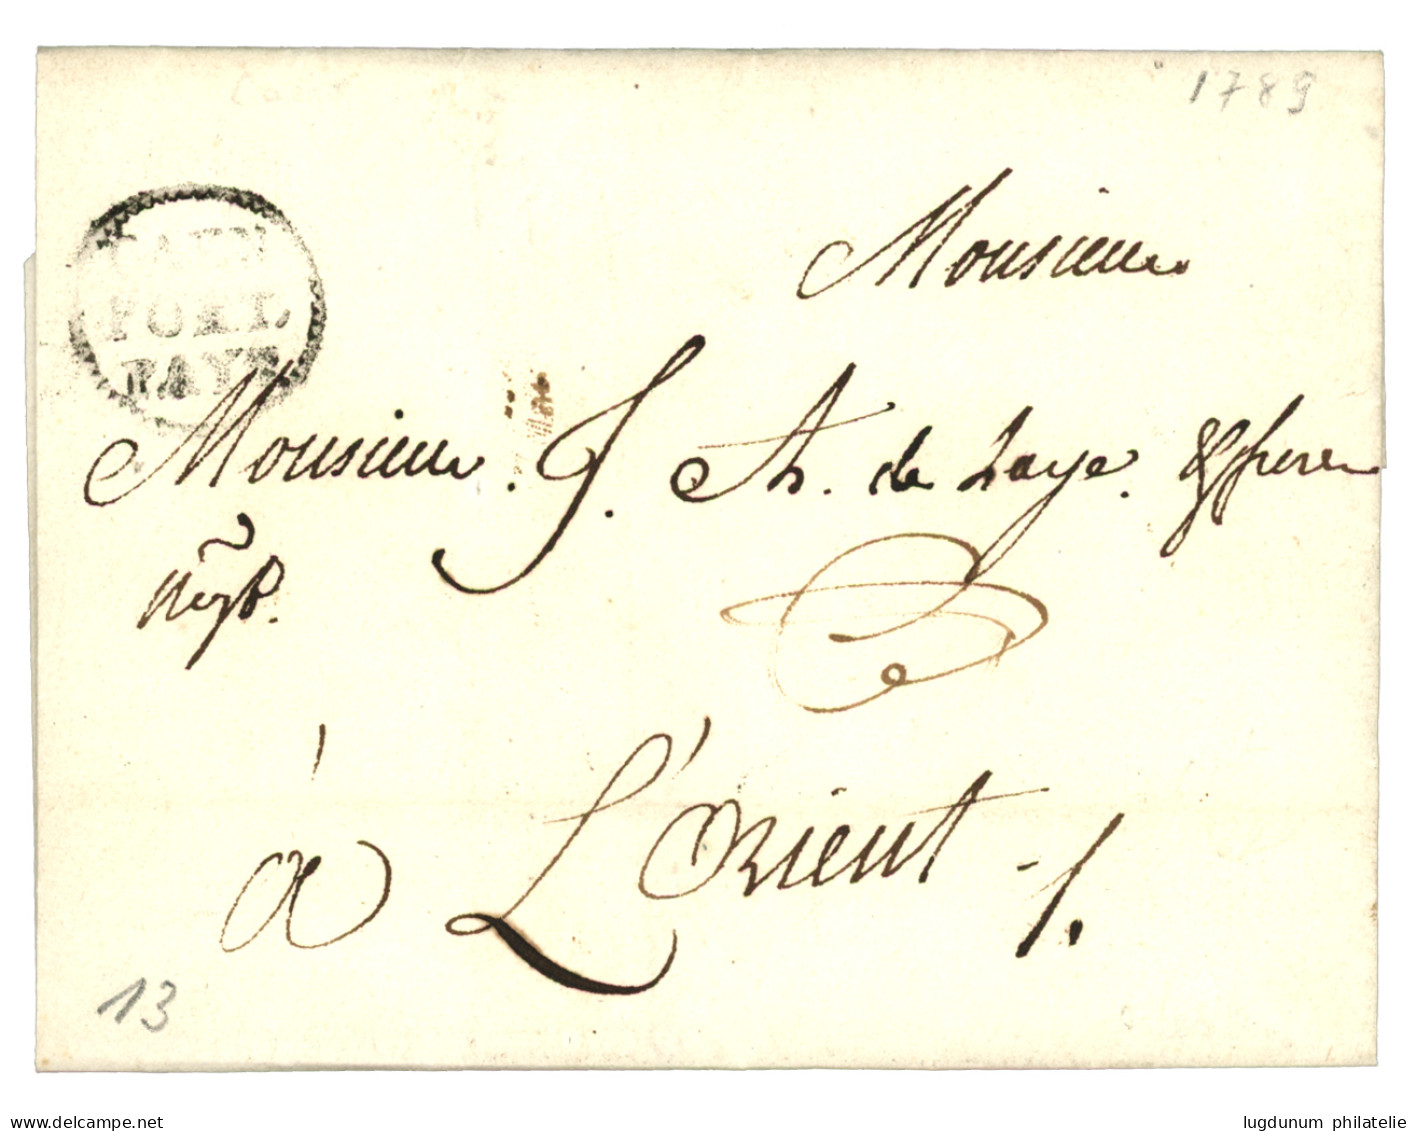 1789
Monsieur
CAEN
PORT
PAYÉ
Monsieur. J. A. de Laye. & frere
Negt.
à L'Orient
13
www.delcampe.net
lugdunum philatelie